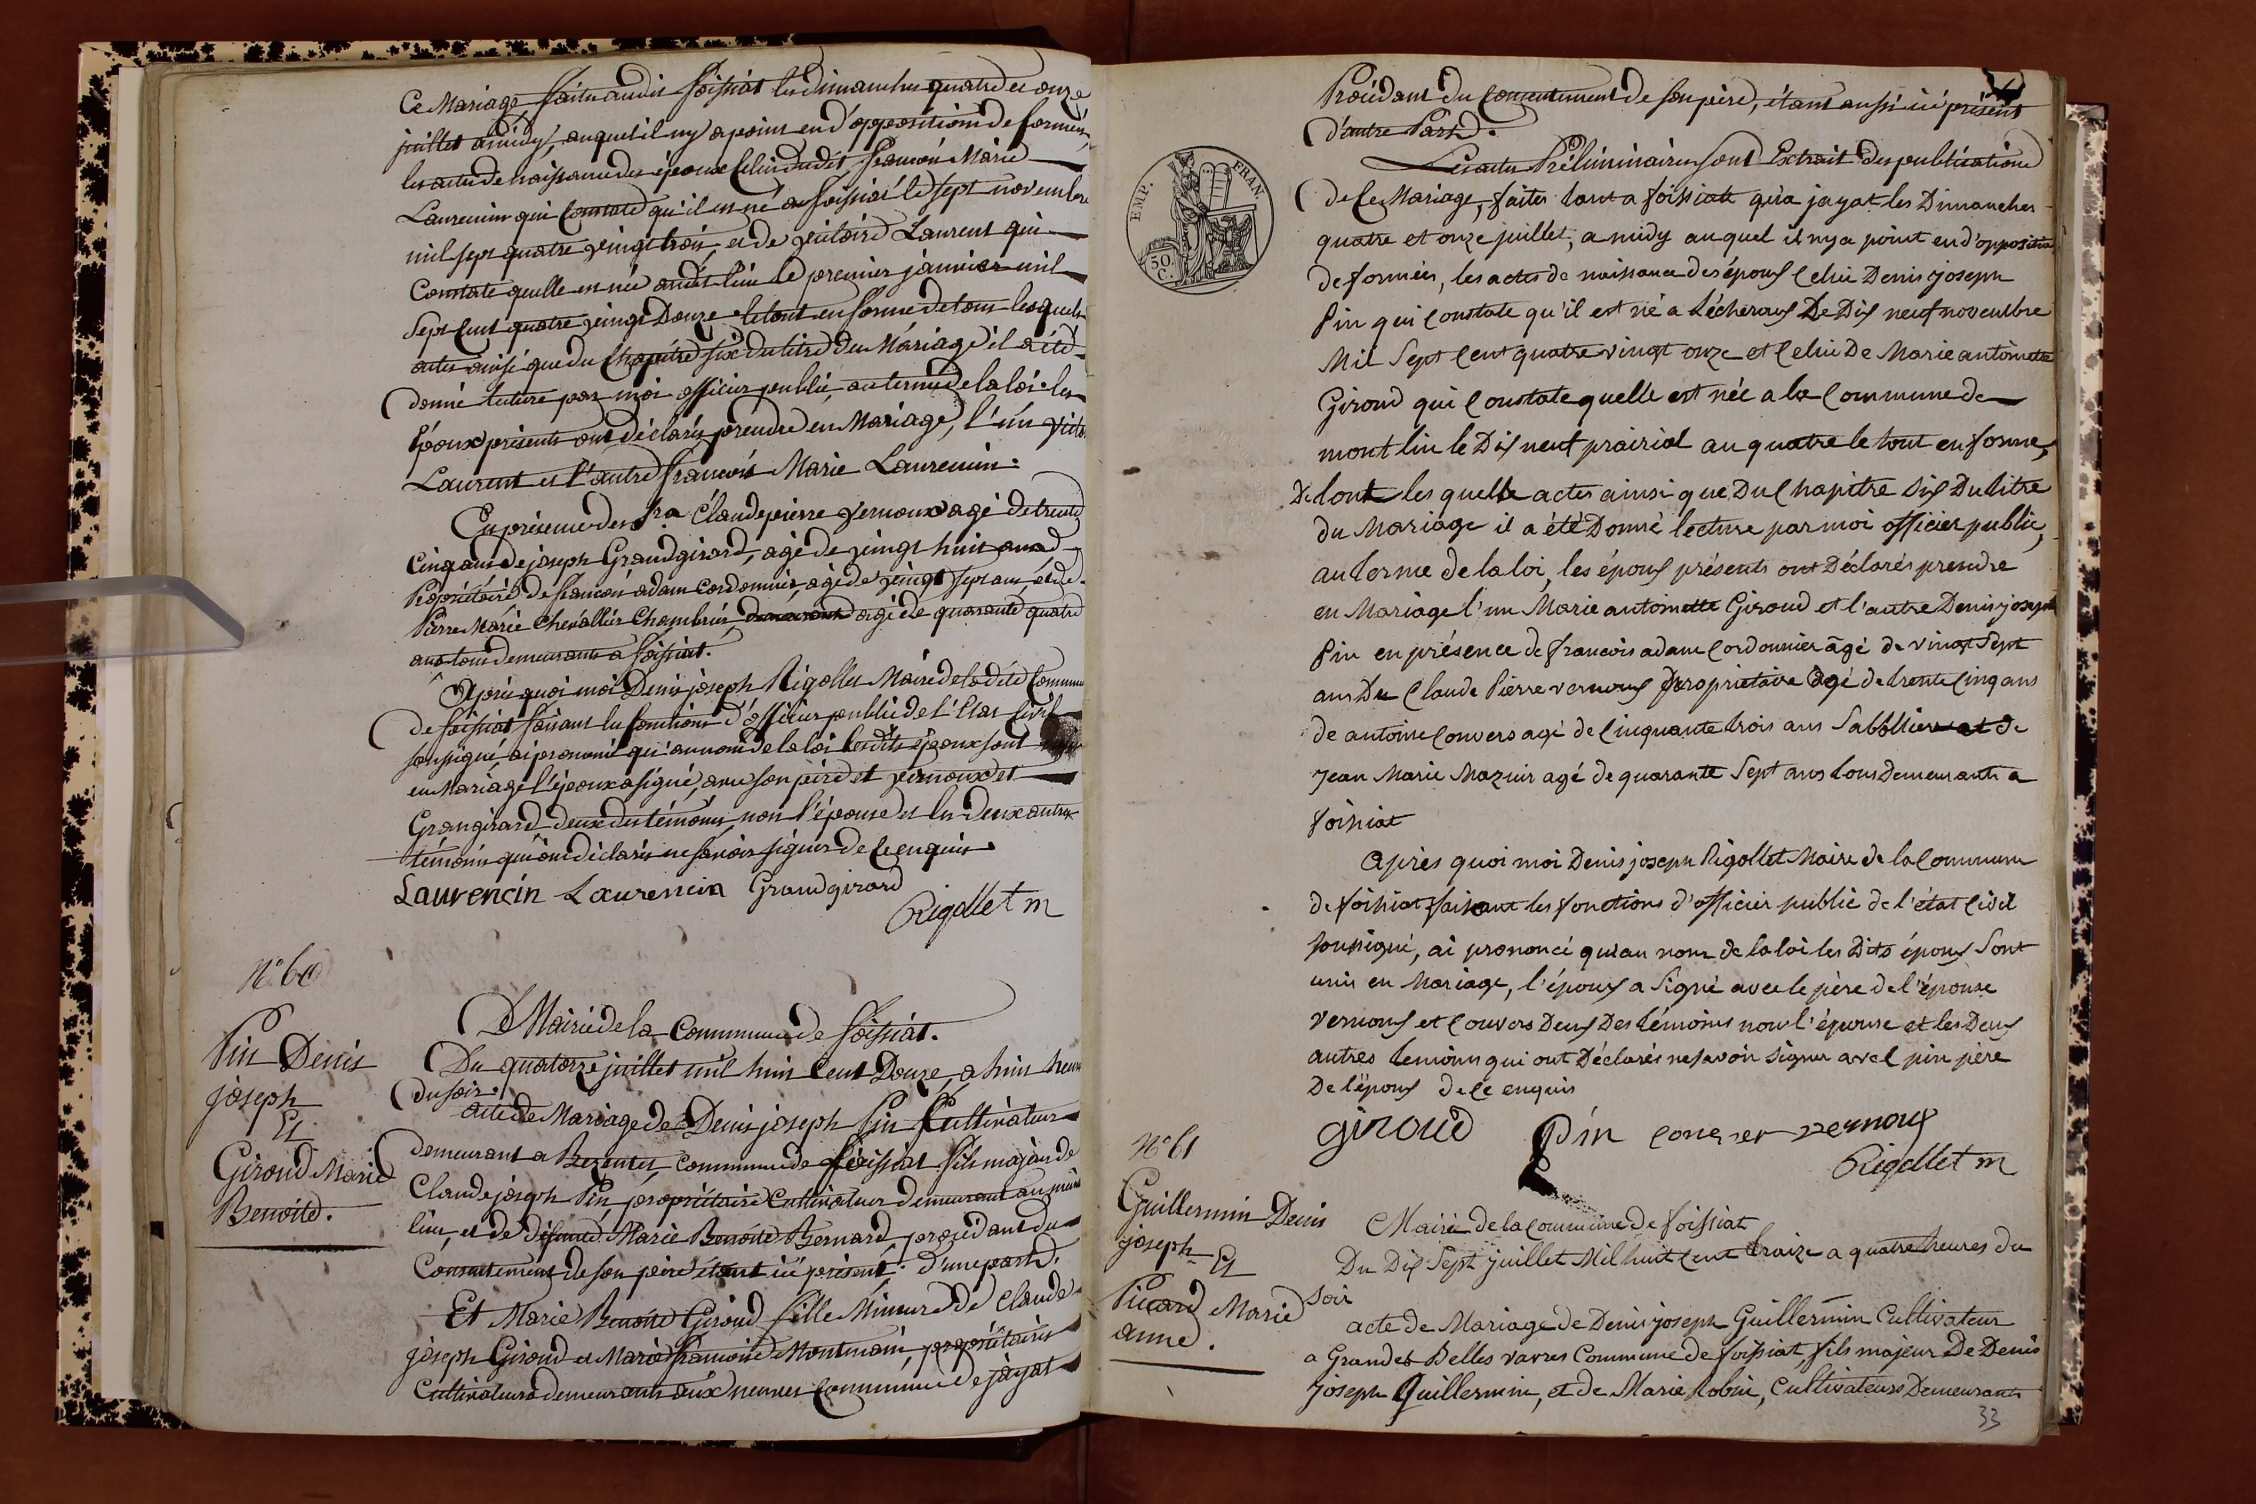 Ce Mariage faits audit foissiat les dimanches quatre et onze
juillet a midy, auquel il ny a point eu d'opposition de formées,
les actes de naissance des époux Celui dudit francois Marie
Laurencin qui Constate qu'il est né a foissiat le sept novembre
mil sept quatre vingt trois, et de victoire Laurent qui
Constate quelle est née audit lieu le premier janvier mil
Sept Cent quatre vingt Douze le tout en forme de tous lesquels
actes ainsi que du Chapitre six du titre du Mariage il a été
donné lecture par moi officier public, au terme de la loi les
époux présents ont déclarés prendre en Mariage, l'un victo
Laurent et l'autre francois Marie Laurencin.
En présence de Claude pierre vernoux agé de trente
Cinq ans de joseph Grandgirard, agé de vingt huit ans
Propriétaire de francois adam cordonnier, agé de vingt sept ans, et de
Pierre Marie Chevallier Chambrier, agé de quarante quatre
ans tous demeurants a foissiat.
Après quoi moi Denis joseph Rigollet Maire de la dite Commune
de foissiat faisant les fonctions d'officier public de l'Etat Civil
soussigné, ai prononcé qu'au nom de la loi lesdits époux sont
en Mariage l'époux a signé, avec son père et vernoux et
Grangirard deux des témoins, non l'épouse et les deux autres
témoins qui ont déclarés ne savoir signer de ce enquis.
Laurencin Laurencin Grandgirard
Rigollet m
N° 60
Pin Denis
joseph
Et
Giroud Marie
Benoite.
Mairie de la Commune de foissiat.
Du quatorze juillet mil huit Cent Douze, a huit heures
du soir.
acte de Mariage de Denis joseph Pin Cultivateur
demeurant a Bezentet, commune de foissiat fils majeur de
Claude joseph Pin, propriétaire Cultivateur demeurant au même
lieu, et de défunte Marie Benoite Bernard, procédant du
Consentement de son père étant ici présent. d'une part.
Et Marie Benoite Giroud fille Mineure de Claude
joseph Giroud et Marie francoise Montmain, propriétaires
Cultivateurs demeurants aux commune de jayat
Procédant du Consentement de son père, étant aussi ici présent
d'autre Part.
Les actes Préliminaires sont Extrait des publications
de Ce Mariage, faites tant a foissiat qu'a jayat les Dimanches
quatre et onze juillet, a midy au quel il ny a point eu d'opposition
de formées, les actes de naissance des époux Celui Denis joseph
Pin qui Constate qu'il est né a Lécheroux De Dix neuf novembre
Mil Sept Cent quatre vingt onze et Celui De Marie antoinette
Giroud qui Constate quelle est née a la Commune de
mont lin le Dix neuf prairial an quatre le tout en forme,
De tout les quelle actes ainsi que Du Chapitre Six Du titre
du Mariage il a été Donné lecture par moi officier public,
au terme de la loi, les époux présents ont Déclarés prendre
en Mariage l'un Marie antoinette Giroud et l'autre Denis joseph
Pin en présence de francois adam Cordonnier âgé de vingt Sept
ans De Claude Pierre vernoux propriétaire agé de trente Cinq ans
de antoine Convers agé de Cinquante trois ans Sabottier et de
Jean Marie Mazuir agé de quarante Sept ans tous Demeurants a
foissiat
Après quoi moi Denis joseph Rigollet Maire de la Commune
de foissiat faisant les fonctions d'officier public de l'état Civil
soussigné, ai prononcé qu'au nom de la loi les Dits époux Sont
unis en Mariage, l'époux a Signé avec le père de l'épouse
vernoux et Convers Deux Des témoins non l'épouse et les Deux
autres temoins qui ont Déclarés ne savoir signer avec pin père
De l'époux de Ce enquis
giroud Pin vernoux
Rigollet m
N° 61
Guillermin Denis
joseph Et
Picard Marie
anne.
Mairie de la commune de foissiat
Du Dix Sept juillet Mil huit Cent traize a quatre heures du
Soir
acte de Mariage de Denis joseph Guillermin Cultivateur
a Grandes Belles varres Commune de foissiat, fils majeur De Denis
joseph Guillermin, et de Marie Robin, Cultivateurs Demeurants
33
EMP. FRAN.
50 C.